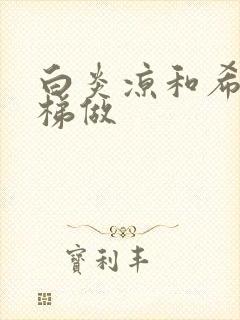 白炎凉和希
梯做
寶利丰